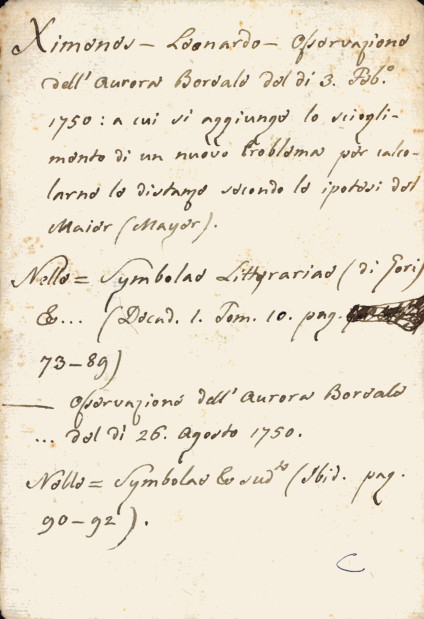 Ximenes – Leonardo – Osservazione
dell' Aurora Boreale del di 3. Feb.º
1750: a cui si aggiunge lo sciogli-
mento di un nuovo Problema per calco-
larne le distanze secondo le ipotesi del
Maier (Mayer).
Nelle = Symbolae Litterariae (di Gori)
&... (Decad. 1. Tom. 10. pag.
73–89)
— Osservazione dell' Aurora Boreale
... del di 26. Agosto 1750.
Nelle = Symbolae & sud.te (Ibid. pag.
90–92).
C